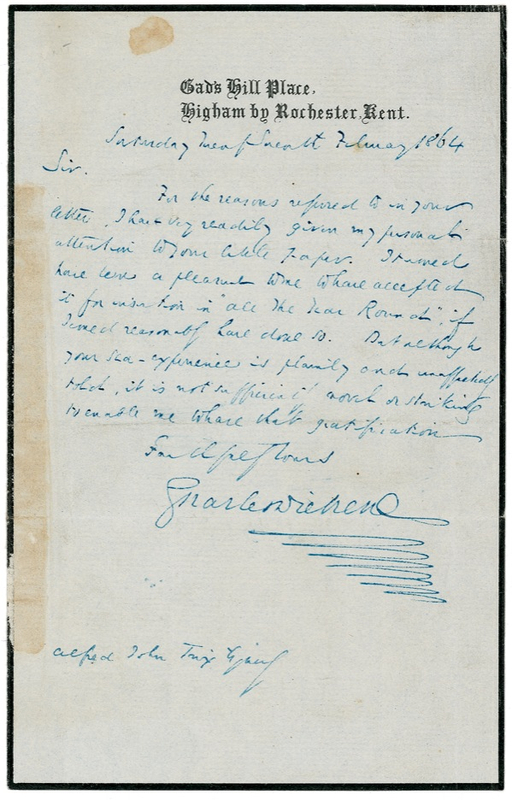 Gad's Hill Place,
Higham by Rochester, Kent.
Saturday Twentieth February 1864
Sir.
For the reasons referred to in your
letter, I have very readily given my personal
attention to your little paper. It would
have been a pleasure to me to have accepted
it for insertion in "All The Year Round", if
I could reasonably have done so. But although
your sea-experience is plainly and unaffectedly
told, it is not sufficiently novel or striking
to enable me to have that gratification
Faithfully Yours
Charles Dickens
Alfred John